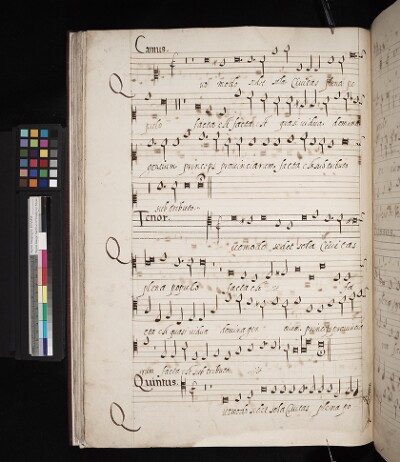 Cantus.
Quo modo sedet sola Civitas plena po
pulo facta est facta est quasi vidua domina
gentium princeps provinciarum facta est sub tributo
sub tributo
Tenor
Quomodo sedet sola Civitas
plena populo facta est
cta est quasi vidua domina gen tium princeps provincia
rum facta est sub tributo
Quintus.
Quomodo sedet sola Civitas plena po